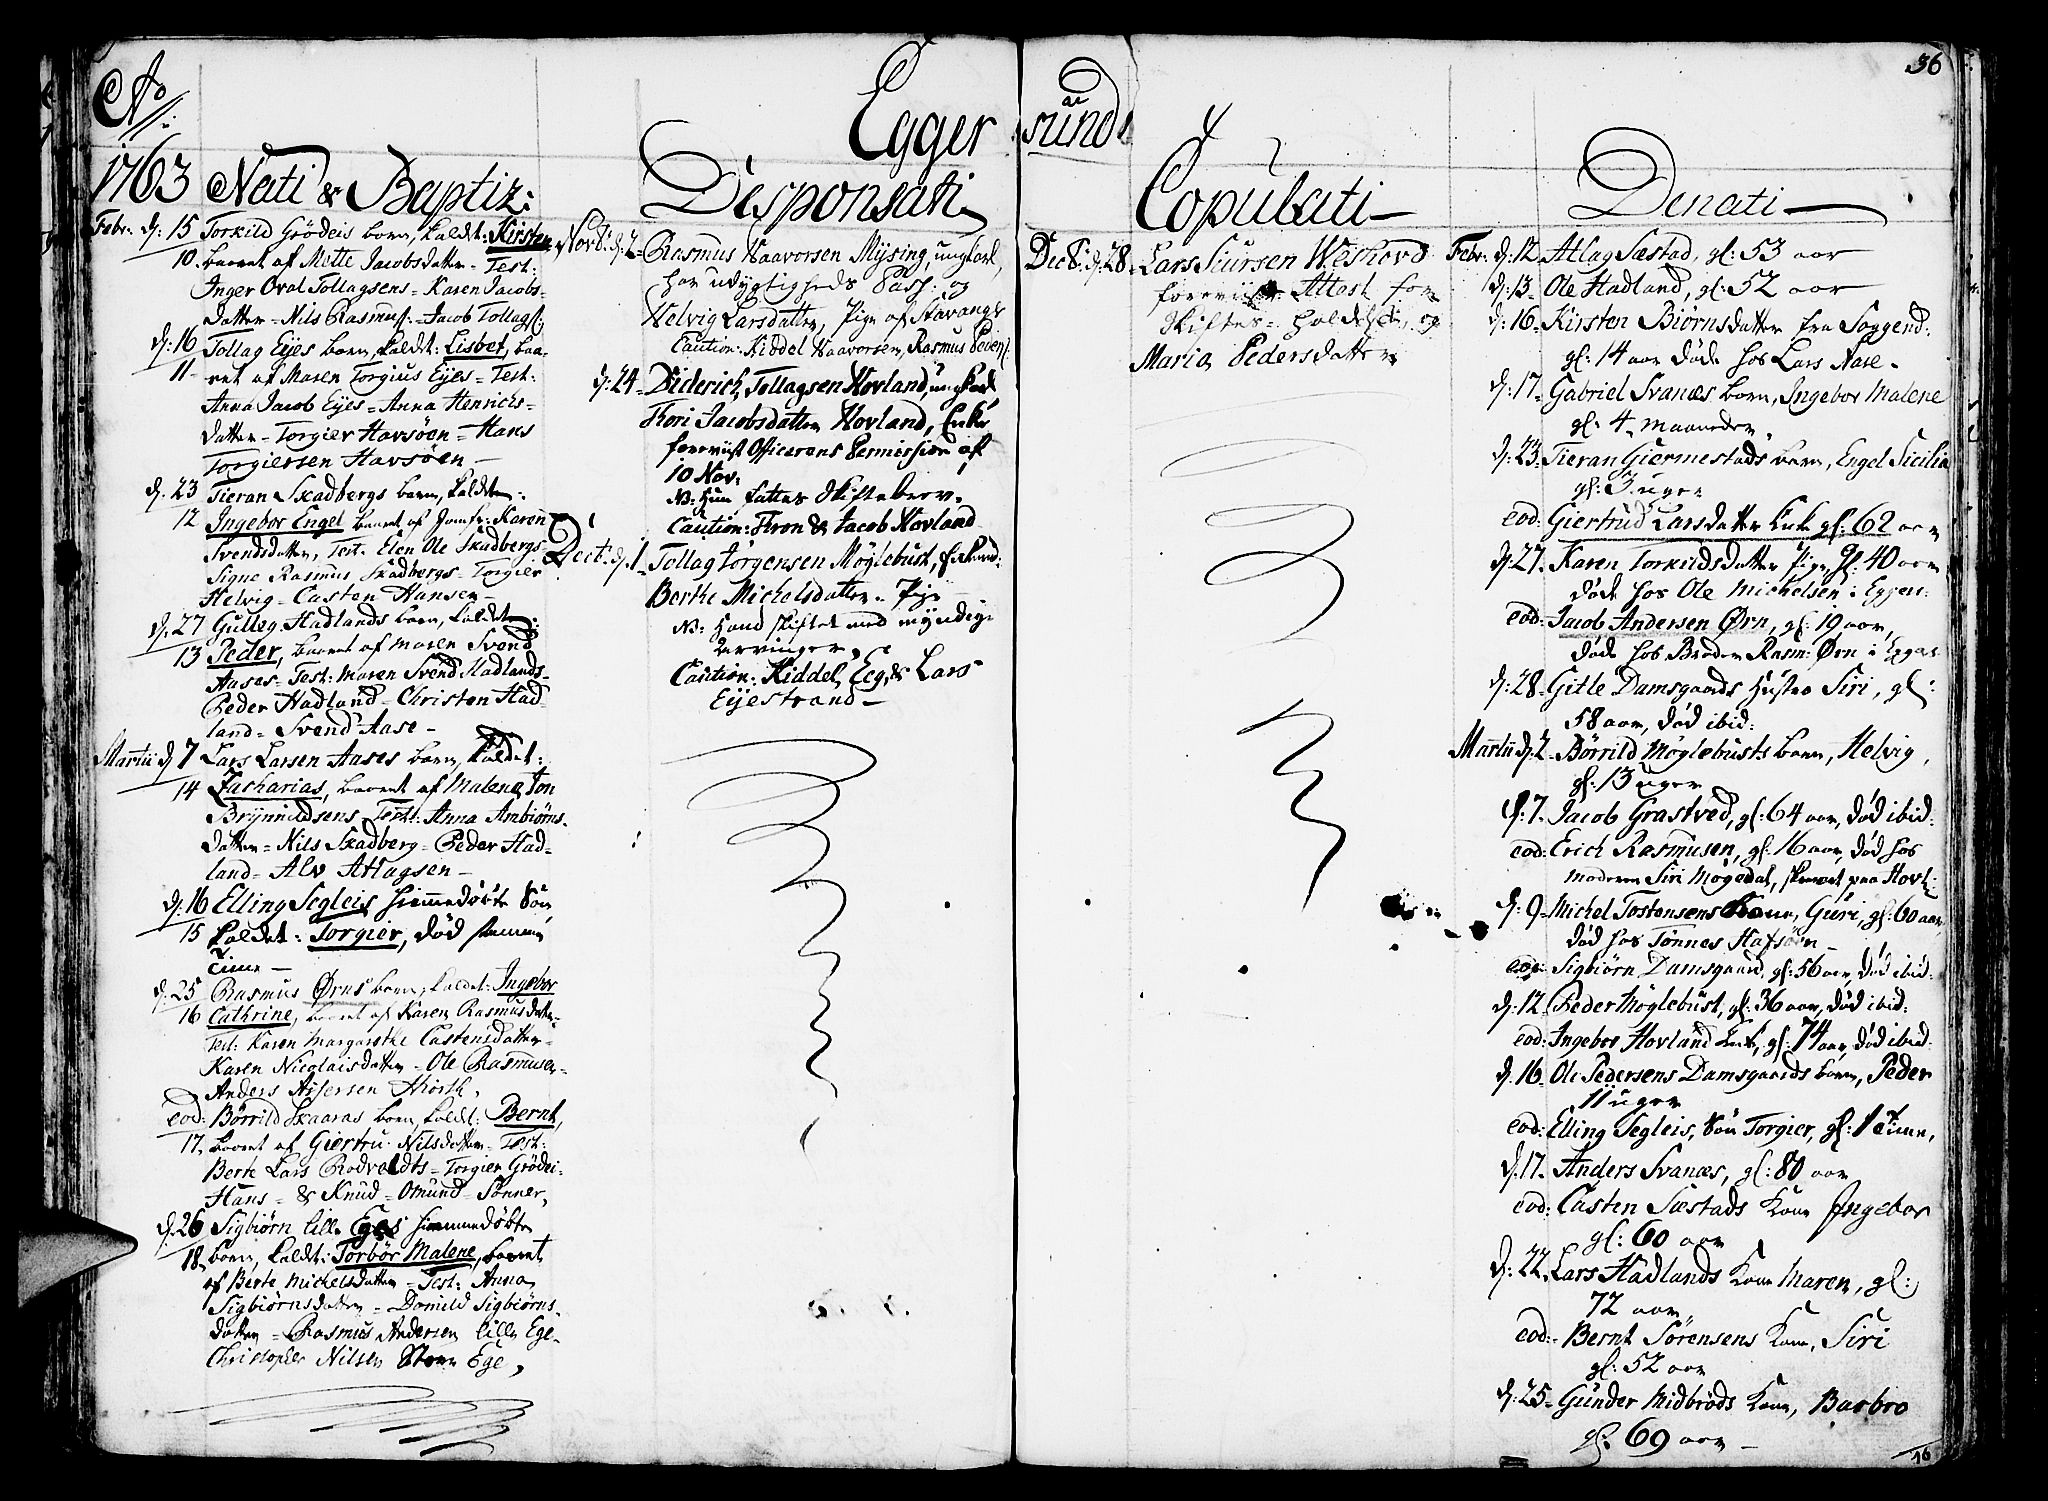 36
Ao
Egger sund
1763 Nati & Baptiz:
Febr. d: 15 Torkild Grödeis barn, kaldt: Kirsten
10. baaret af Mette Jacobsdatter - Test:
Inger Oval Tollagsens - Karen Jacobs-
datter - Nils Rasmus: - Jacob Tollags:
d: 16 Tollag Eijes barn, kaldt: Lisbet, baa-
11 ret af Maren Torgius Eijes - Test:
Anna Jacob Eijes - Anna Henrichs-
datter - Torgier Havsöen - Hans
Torgiersen Havsöen -
d. 23 Tieran Skadbergs barn, kaldt:
12 Ingebor Engel baaret af Jomfr: Karen
Svendsdatter, Test. Elen Ole Skadbergs
Signe Rasmus Skadbergs - Torgier
Helvig - Casten Hansen -
d. 27 Gulleg Hadlands barn, kaldt:
13 Peder, baaret af Maren Svend
Aases - Test: Maren Svend Hadlands-
Peder Hadland - Christen Had-
land - Svend Aase -
Martii d 7 Lars Larsen Aases barn, kaldet:
14 Zacharias, baaret af Malena Jon
Brynnildsens Test: Anna Ambiörns-
datter - Nils Skadberg - Peder Had-
land - Alv Atlagsen -
d: 16 Elling Segleis hiemmedöbte Sön
15 kaldet: Torgier, död samme
Time -
d: 25 Rasmus Ørns barn, kaldet: Ingebor
16 Cathrine, baaret af Karen Rasmusdatter
Test: Karen Margarethe Castensdatter -
Karen Nicolaisdatter - Ole Rasmusen -
Anders Assersen
eod: Börrild Skaaras barn, kaldt: Bernt,
17. baaret af Giertru Nilsdatter - Test:
Berte Lars Rodveldts - Torgier Grödei-
Hans - & Knud - Omund - Sönner,
d. 26 Sigbiörn lille Eges hiemmedöbte
18 barn, kaldt: Torbör Malene, baaret
af Berte Michelsdatter - Test: Anna
Sigbiörnsdatter - Domild Sigbiörns-
datter - Rasmus Andersen lille Ege -
Christopher Nilsen Store Ege,
Desponsati
Novb: d. 2 Rasmus Haavorsen Mÿsing, ungkarl,
har udygtigheds Pass: og
Helvig Larsdatter, Pige af Stavanger
Caution: Kiddel Haavorsen, Rasmus Peders:
d: 24 Diderich Tollagsen Hovland, ungkarl
Thori Jacobsdatter Hovland, Enke
foreviist Officerens Permission af
10 Nov:
NB: Hun fattes Skiftebrev.
Caution: Thron & Jacob Hovland
Decb: d. 1 Tollag Jörgensen Möglebust, Enkemd:
Berthe Michelsdatter - Pige
NB: Hand skiftet med myndige
Arvinger.
Caution: Kiddel Eeg, & Lars
Eijestrand -
Copulati
Decb: d. 28 Lars Siursen Weshovd
foreviiste Attest for
Skiftes - holdelse, og
Maria Pedersdatter
Denati
Febr. d: 12 Atlag Sæstad, gl: 53 aar
d: 13 Ole Hadland, gl: 52 aar
d: 16 Kirsten Biörnsdatter fra Soggend:
gl: 14 aar döde hos Lars Aase -
d: 17 Gabriel Svanæs barn, Ingebor Malene
gl: 4 maaneder,
d: 23 Tieran Giermestads barn, Engel Sicilia
gl: 3 uger
eod: Giertrud Larsdatter Enke gl: 62 aar
d: 27 Karen Torkildsdatter Pige, gl: 40 aar
döde hos Ole Michelsen i Eggers:
eod: Jacob Andersen Ørn, gl: 19 aar,
döde hos Broder Rasm: Ørn i Eggers
d: 28 Gitle Damsgaards Hustro Siri, gl:
58 aar, död ibid:
Martii d. 2 Börrild Möglebusts barn, Helvig,
gl: 13 uger
d: 7 Jacob Grastved, gl: 64 aar, död ibid:
eod: Erich Rasmusen, gl: 16 aar, död hos
moderen Siri Mögedal, paa Hovl:
d: 9 Michel Tostensens Kone, Guri, gl: 60 aar,
död hos Tönnes Hafsöen -
eod: Sigbiörn Damsgaard, gl: 56 aar, död ibid:
d: 12 Peder Möglebust, gl: 36 aar, död ibid:
eod: Ingebor Hovland Enke, gl: 74 aar, död ibid:
d. 16 Ole Pedersens Damsgaards barn, Peder
11 uger
eod: Elling Segleis, Sön Torgier, gl: 1 time,
d. 17 Anders Svanæs, gl: 80 aar
eod: Casten Sæstads Kone Ingebor
gl: 60 aar
d: 22 Lars Hadlands Kone Maren, gl:
72 aar,
eod: Bernt Sörensens Kone, Siri
gl: 52 aar
d: 25 Gunder Midbröds Kone, Barbro
gl: 69 aar -
16